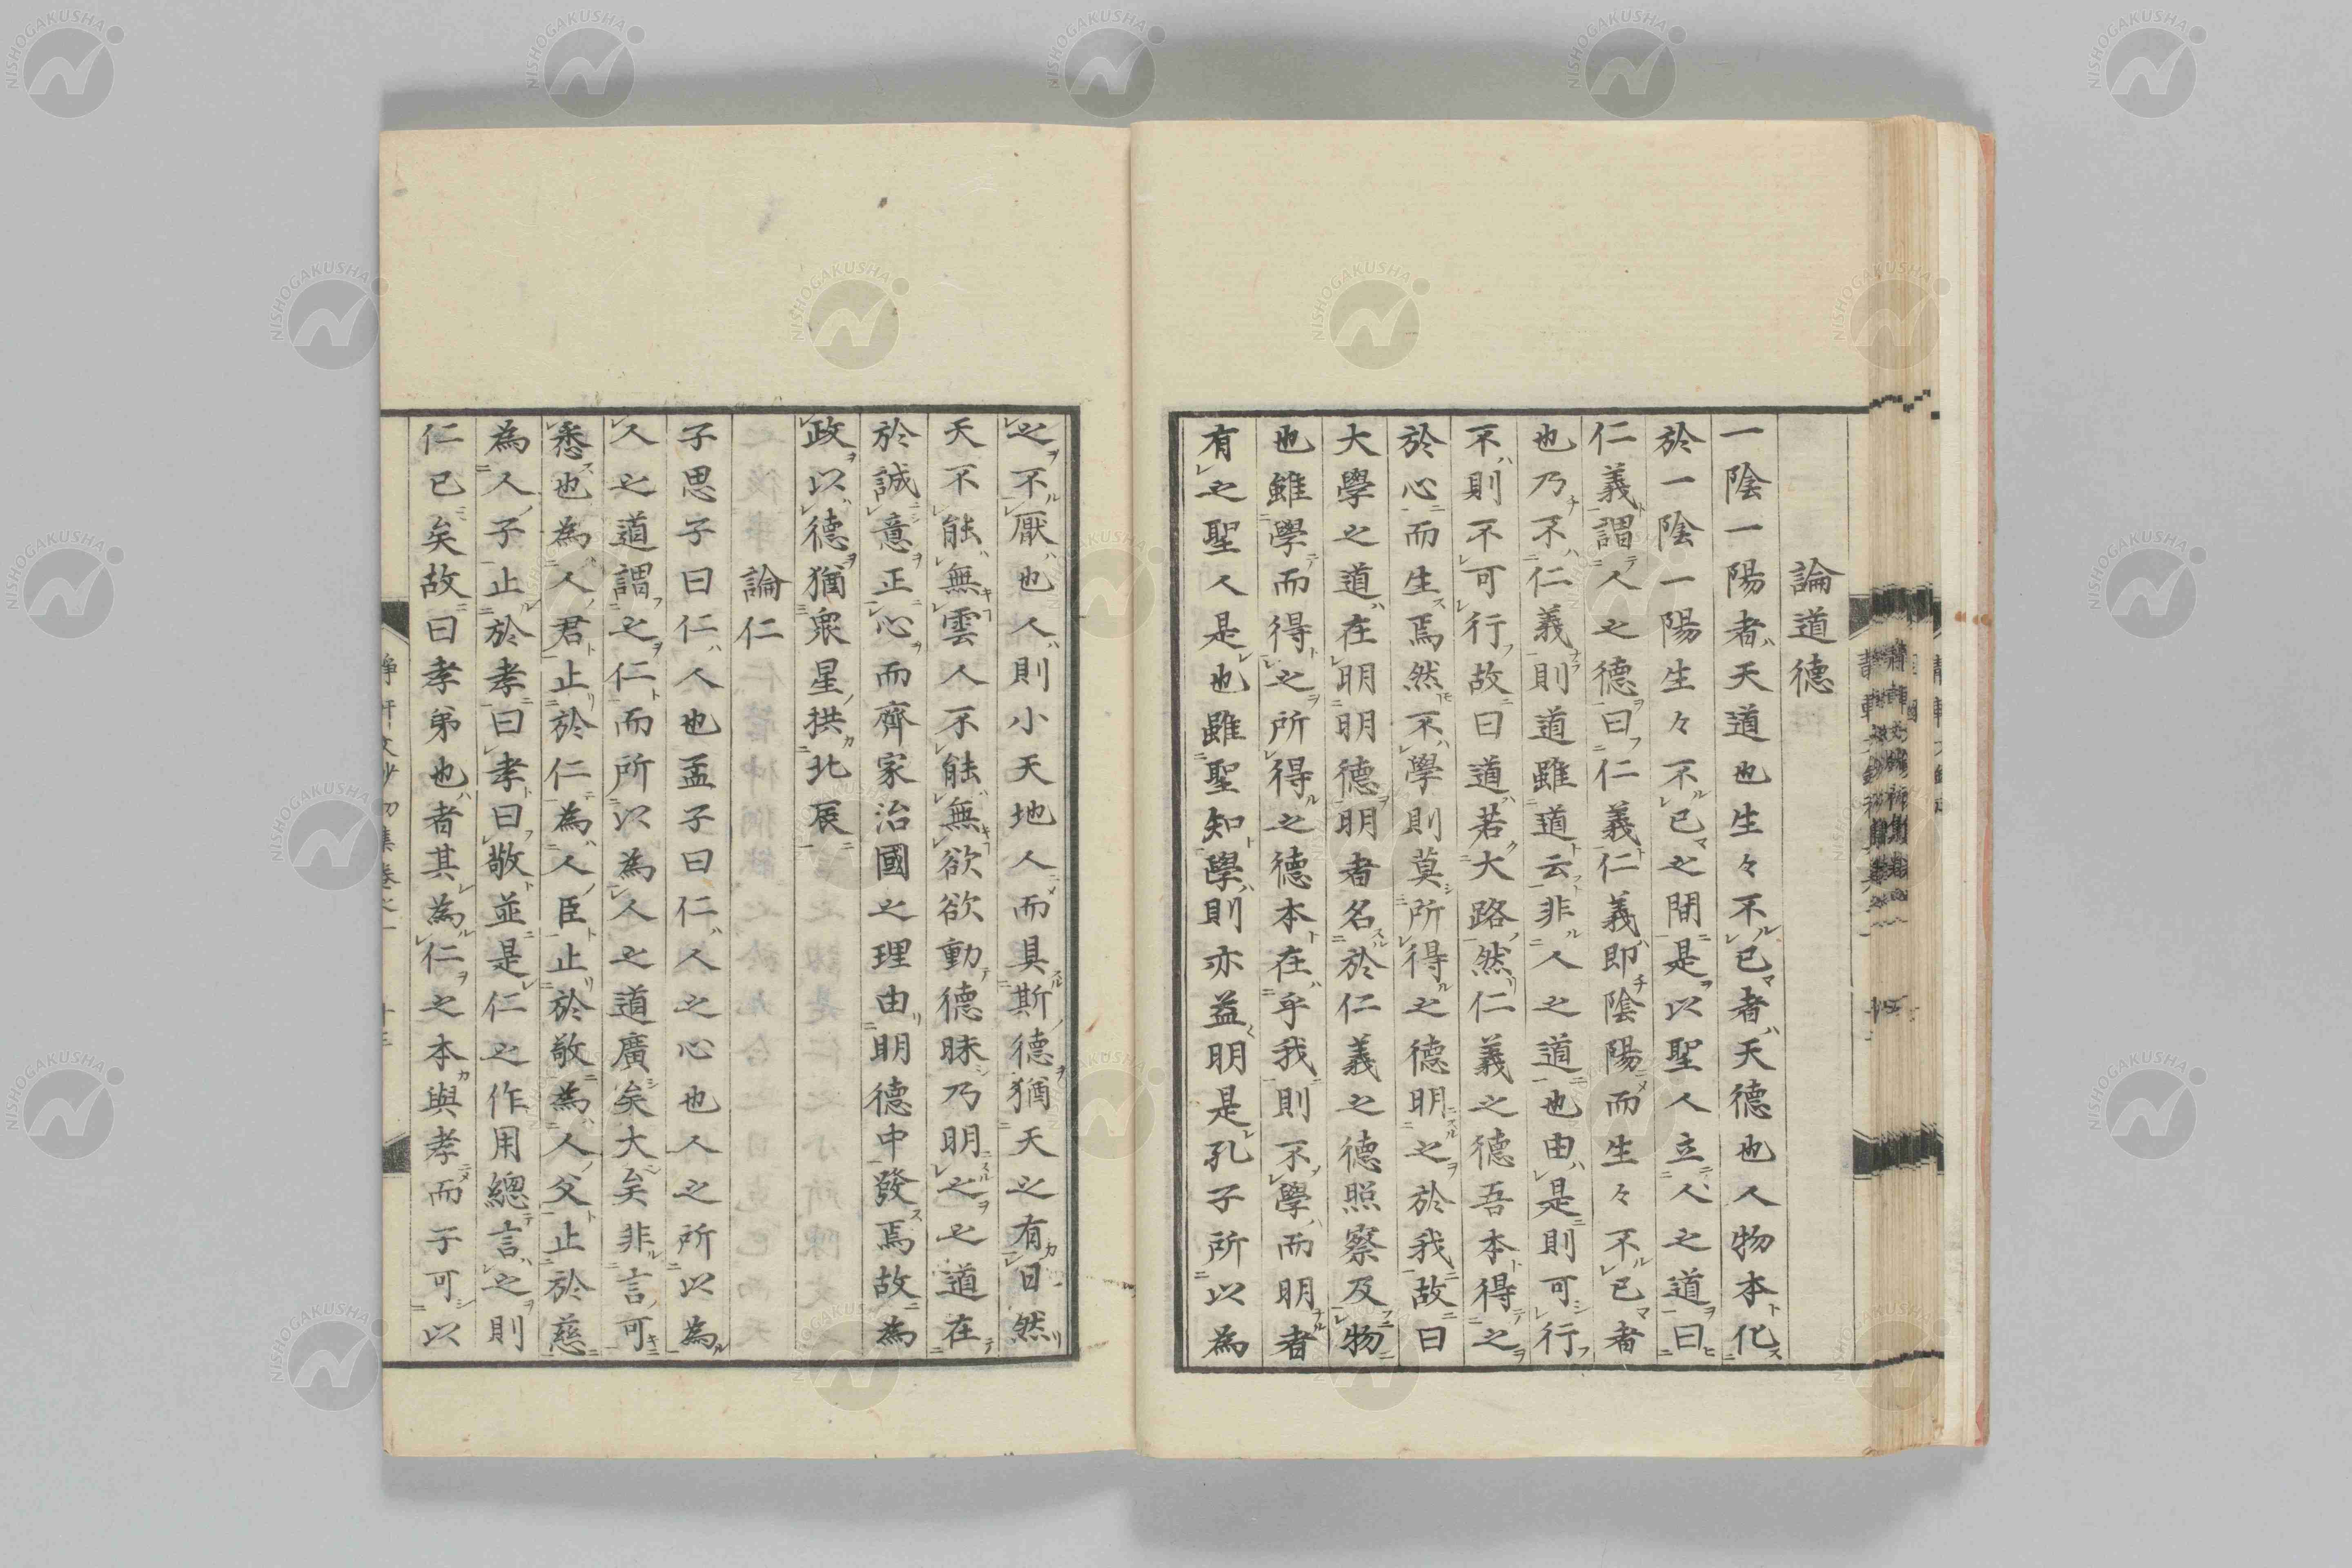 論道德
一陰一陽者天道也生々不已者天德也人物本化
於一陰一陽生々不已之間是以聖人立人之道曰
仁義謂人之德曰仁義仁義即陰陽而生々不已者
也乃不仁義則道雖道云非人之道也由是則可行
不則不可行故曰道若大路然仁義之德吾本得之
於心而生焉然不學則莫所得之德明之於我故曰
大學之道在明明德明者名於仁義之德照察及物
也雖學而得之所得之德本在乎我則不學而明者
有之聖人是也雖聖知學則亦益明是孔子所以為
之不厭也人則小天地人而具斯德猶天之有日然
天不能無雲人不能無欲欲動德昧乃明之之道在
於誠意正心而齊家治國之理由明德中發焉故為
政以德猶衆星拱北辰
論仁
子思子曰仁人也孟子曰仁人之心也人之所以為
人之道謂之仁而所以為人之道廣矣大矣非言可
悉也為人君止於仁為人臣止於敬為人父止於慈
為人子止於孝曰孝曰敬並是仁之作用總言之則
仁已矣故曰孝弟也者其為仁之本與孝而子可以
NISHOGAKUSHA